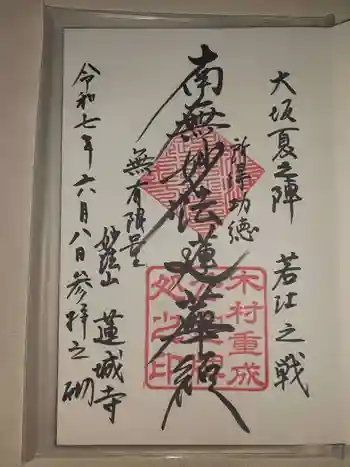 大坂夏之陣 若江之戦
所得功徳
南無妙法蓮華経
無有限量
木村重成
令和七年六月八日参拝之砌
蓮城寺